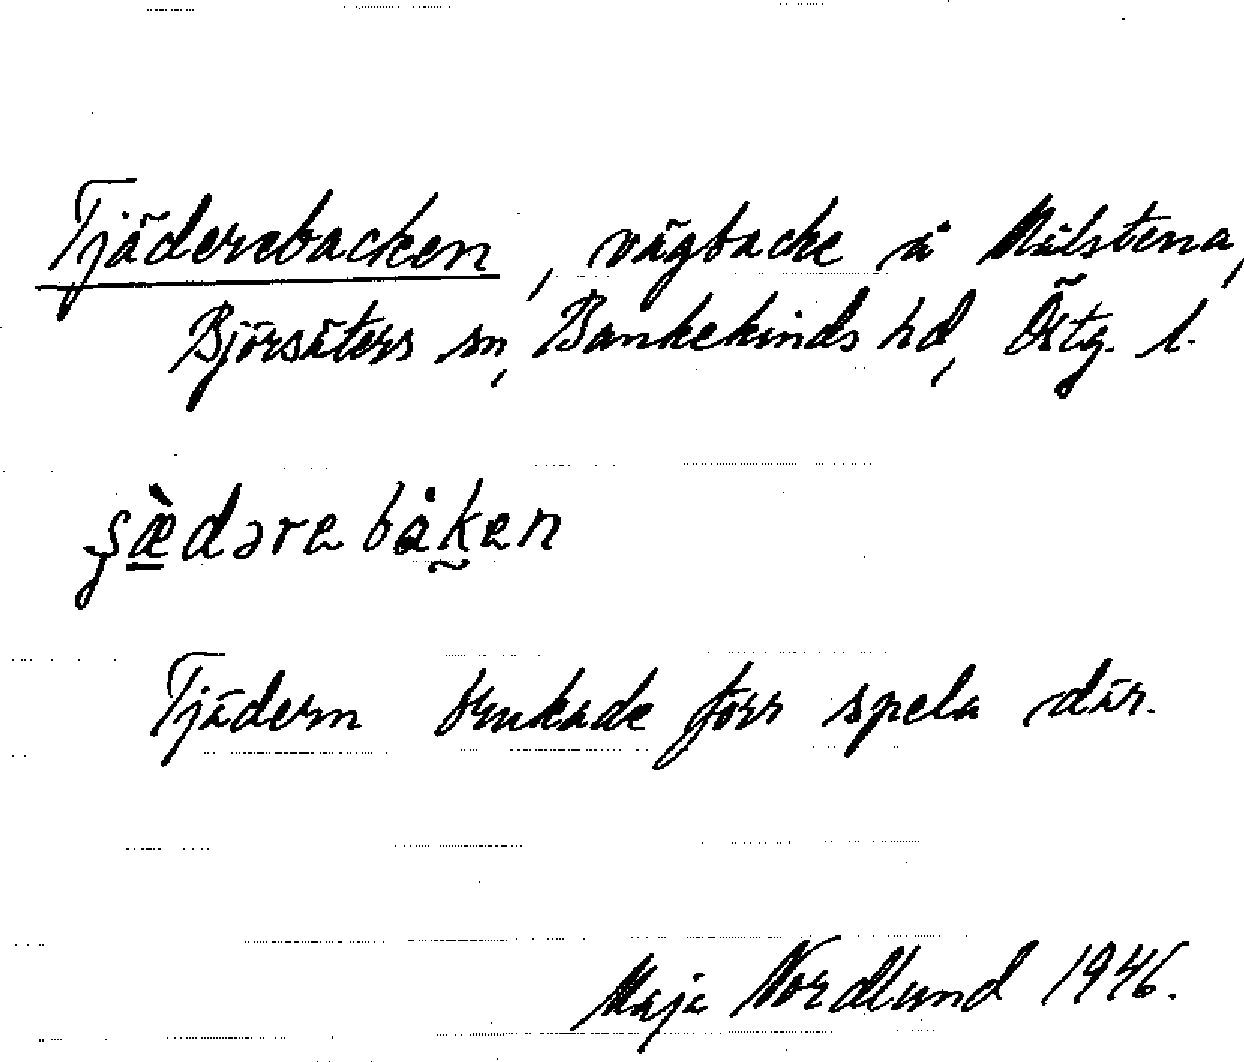 Tjäderebacken, vägbacke å Målstena,
Björsäters sn, Bankekinds hd, Östg. l.
Tjädern brukade förr spela där.
Maja Nordlund 1946.